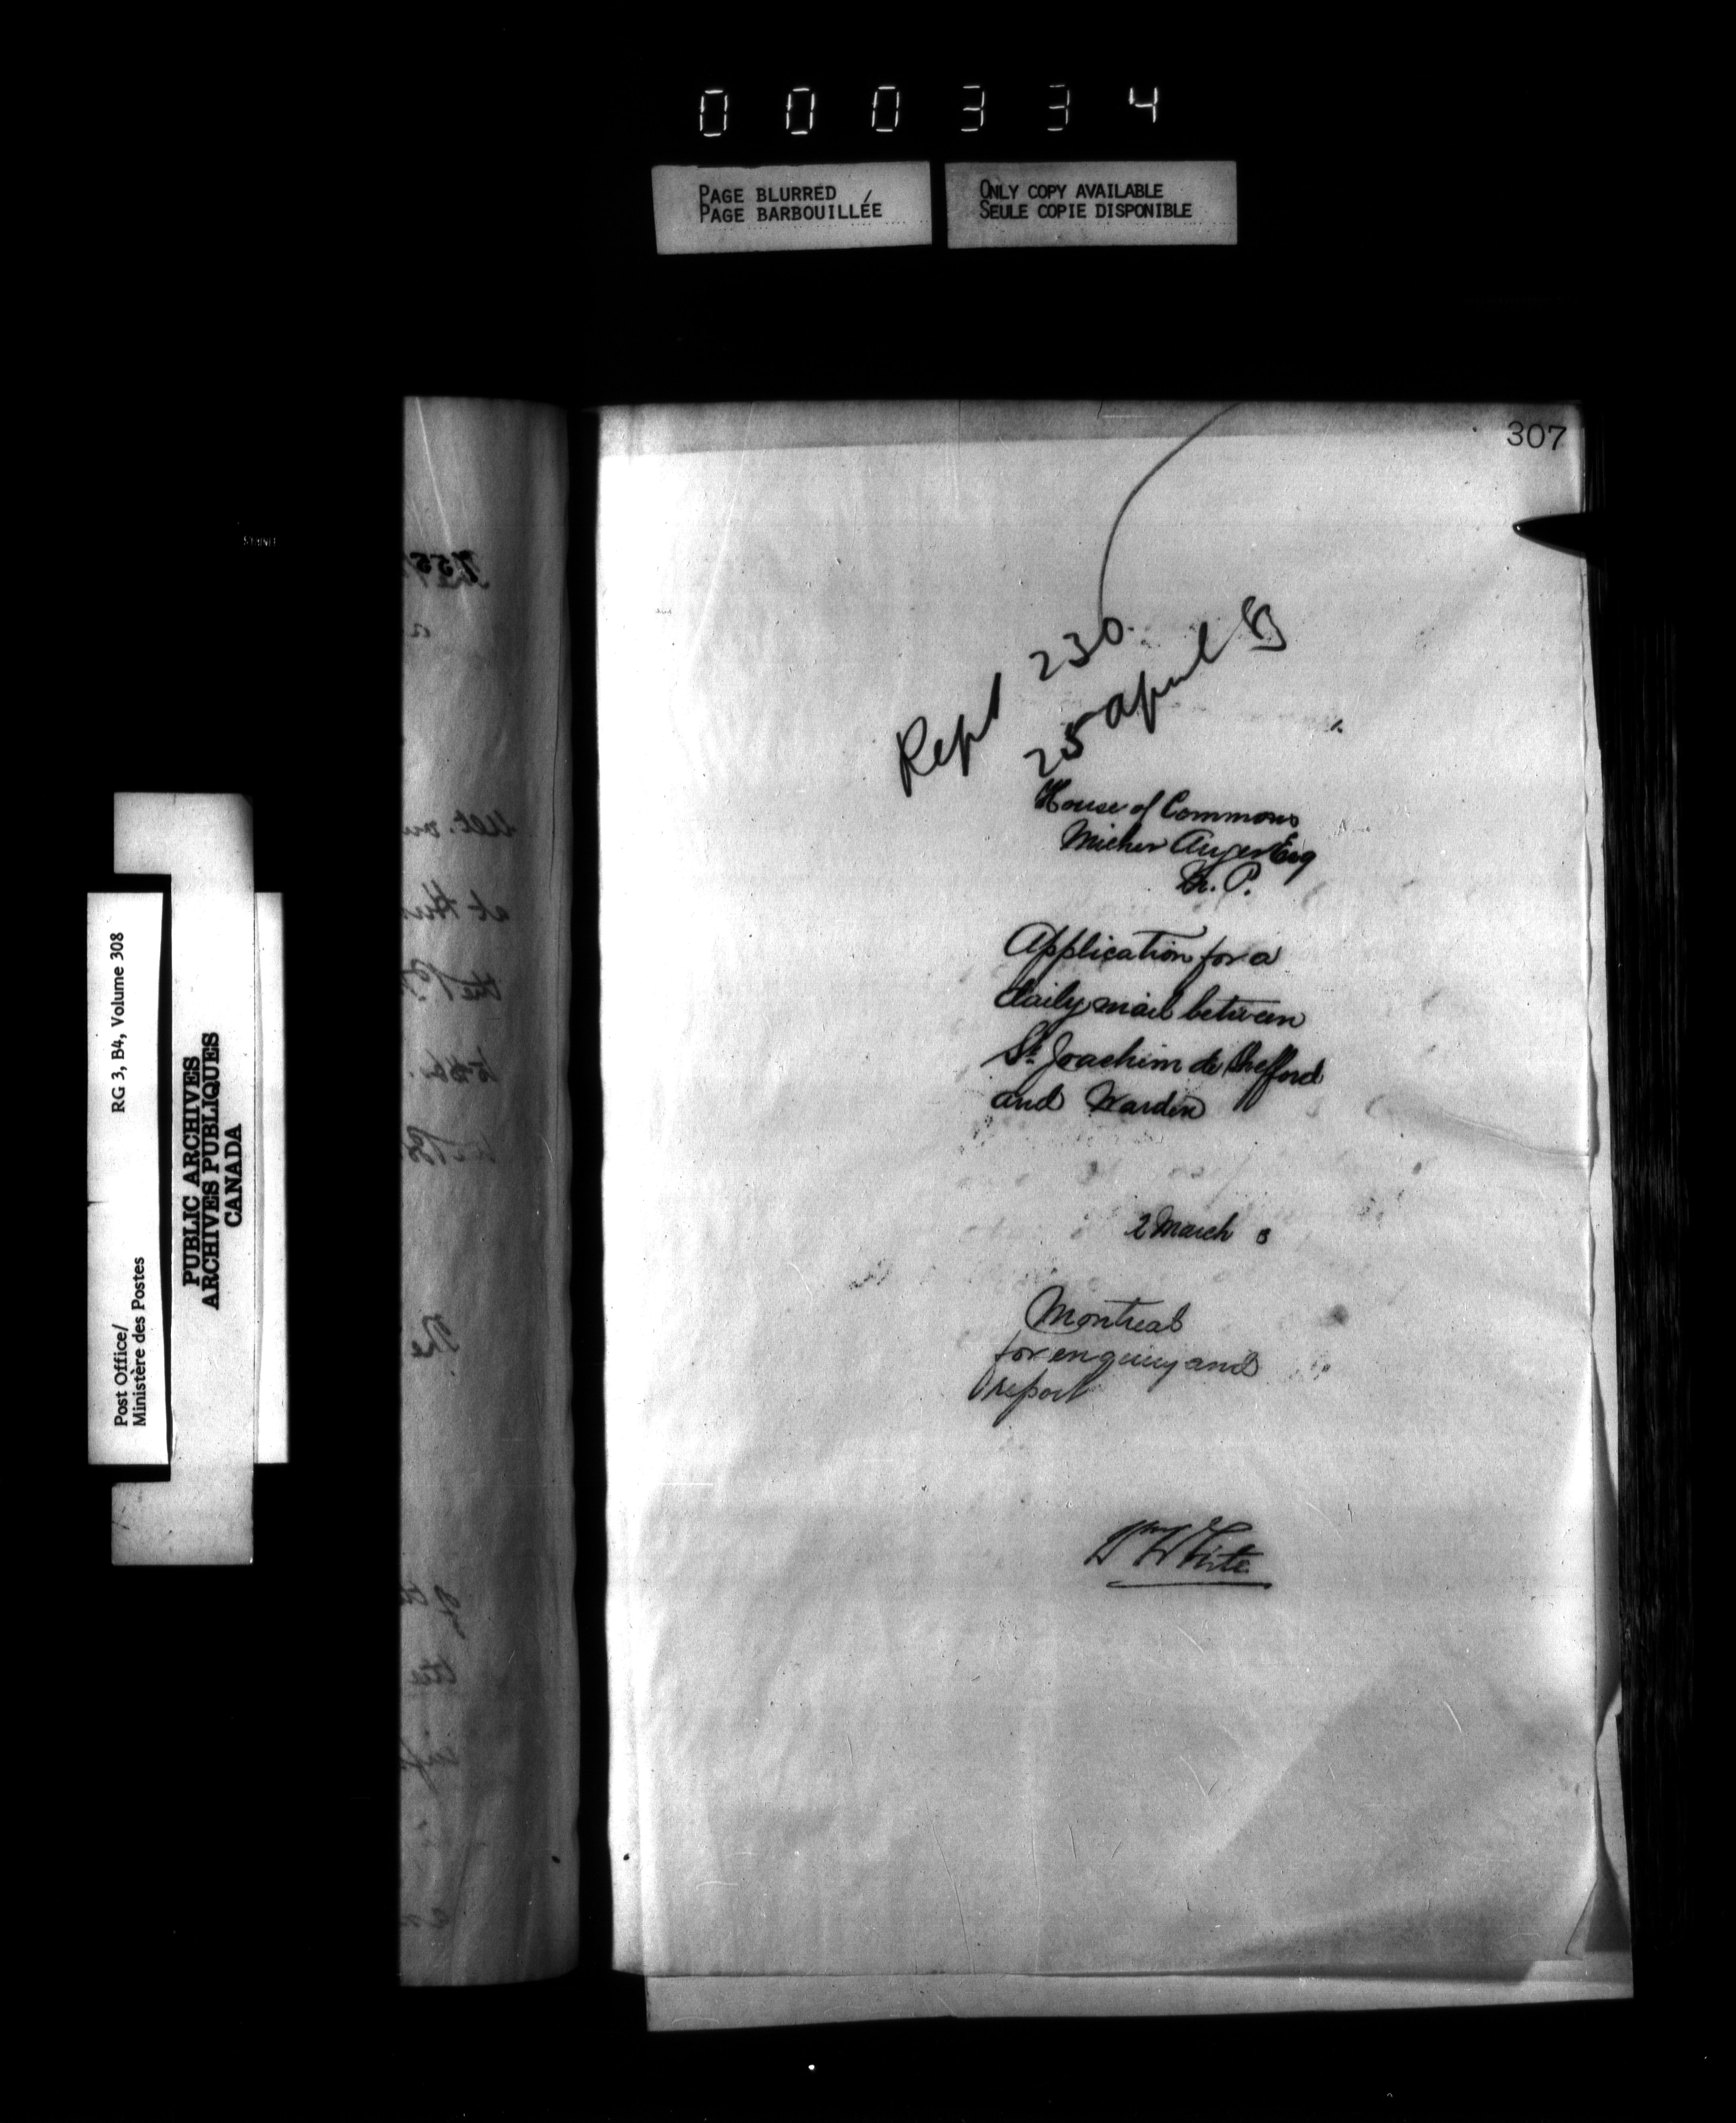 000334
PAGE BLURRED
PAGE BARBOUILLÉE
ONLY COPY AVAILABLE
SEULE COPIE DISPONIBLE
307
Rept 230
25 april 83
House of Commons
Micher Auger Esq
M. P.
Application for a
daily mail between
St Joachim de Shefford
and Warden
2 March 3
Montreal
for enquiry and
report
Wm White
Post Office/
Ministère des Postes
RG 3, B4, Volume 308
PUBLIC ARCHIVES
ARCHIVES PUBLIQUES
CANADA